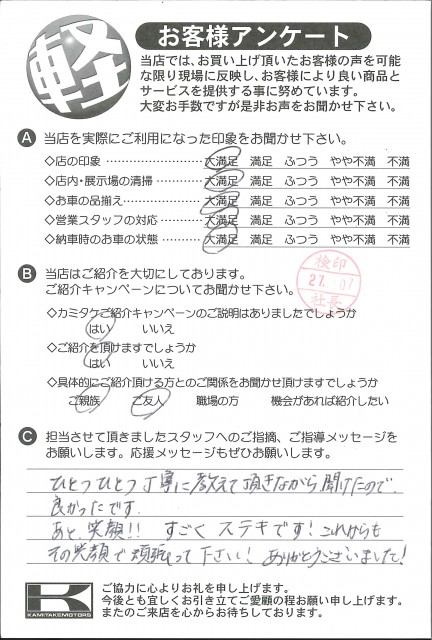 軽
お客様アンケート
当店では、お買い上げ頂いたお客様の声を可能
な限り現場に反映し、お客様により良い商品と
サービスを提供する事に努めています。
大変お手数ですが是非お声をお聞かせ下さい。
A 当店を実際にご利用になった印象をお聞かせ下さい。
◇店の印象 ………………… 大満足 満足 ふつう やや不満 不満
◇店内・展示場の清掃……… 大満足 満足 ふつう やや不満 不満
◇お車の品揃え…………… 大満足 満足 ふつう やや不満 不満
◇営業スタッフの対応……… 大満足 満足 ふつう やや不満 不満
◇納車時のお車の状態 …… 大満足 満足 ふつう やや不満 不満
B 当店はご紹介を大切にしております。
ご紹介キャンペーンについてお聞かせ下さい。
検印
27. 07
社長
◇カミタケご紹介キャンペーンのご説明はありましたでしょうか
はい いいえ
◇ご紹介を頂けますでしょうか
はい いいえ
◇具体的にご紹介頂ける方とのご関係をお聞かせ頂けますでしょうか
ご親族 ご友人 職場の方 機会があれば紹介したい
C 担当させて頂きましたスタッフへのご指摘、ご指導メッセージを
お願いします。応援メッセージもぜひお願いします。
ひとつひとつ丁寧に教えて頂きながら、聞けたので、
良かったです。
あと、笑顔!! すごくステキです!これからも
その笑顔で頑張って下さい!ありがとうございました!
K
KAMITAKEMOTORS
ご協力に心よりお礼を申し上げます。
今後とも宜しくお引き立てご愛顧の程お願い申し上げます。
またのご来店を心からお待ちしております。